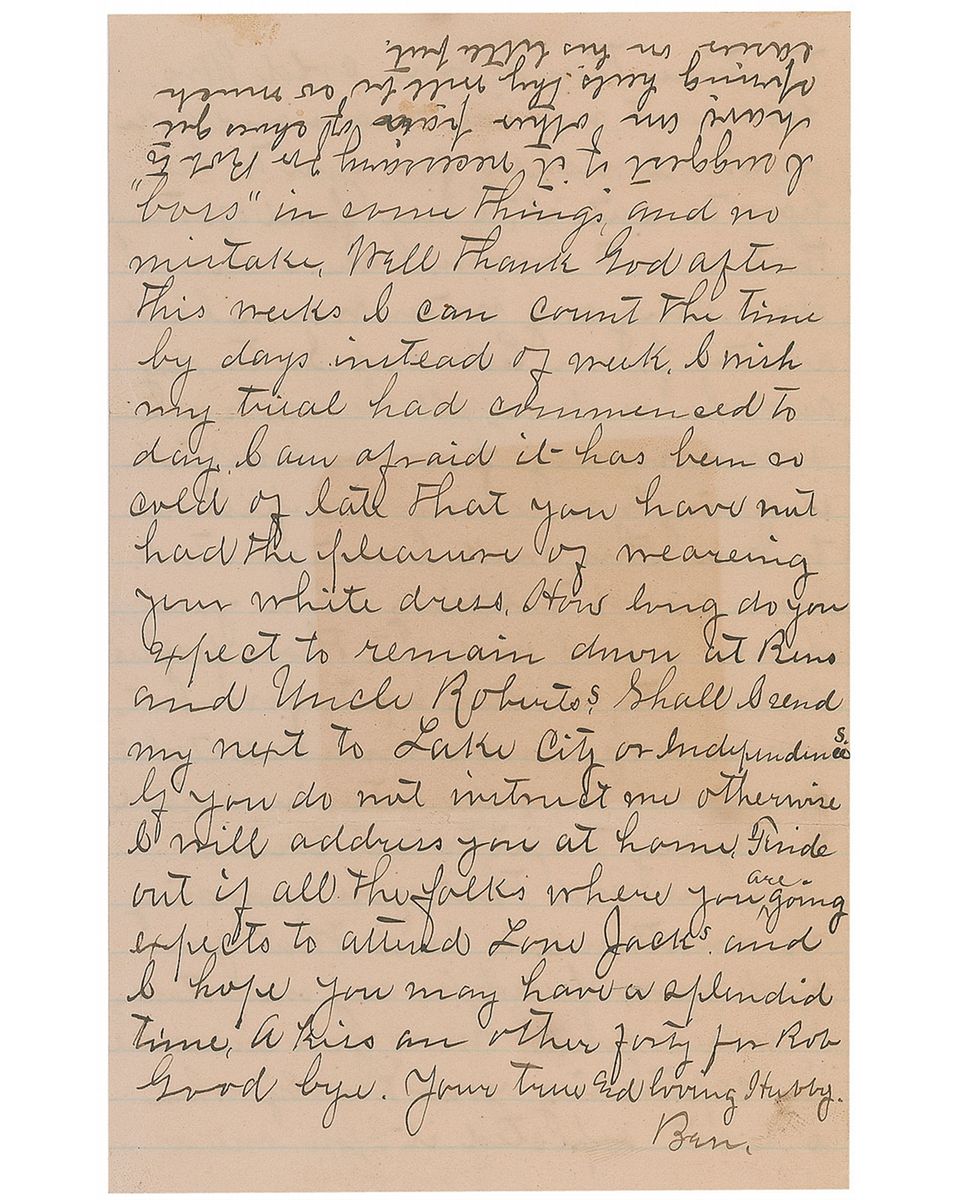 "boss" in some things, and no
mistake. Well thank God after
this weeks I can count the time
by days instead of week. I wish
my trial had commenced to
day. I am afraid it has been so
cold of late that you have not
had the pleasure of weareing
your white dress. How long do you
expect to remain down at Bens
and Uncle Robertss. Shall I send
my next to Lake City or Independences.
If you do not instruct me otherwise
I will address you at home. Finde
out if all the folks where you are going
expects to attend Lone Jacks. and
I hope you may have a splendid
time. A kiss an other forty for Rob
Good bye. Your true and loving Hubby.
Ben.
I suggest if it necessary for Rob to
have an other pair of shoes get
spring heels. they will be so much
easier on his little feet.